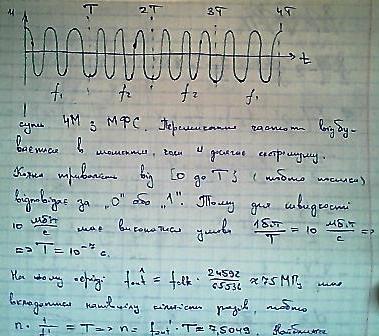 u T 2T 3T 4T
t
f₁ f₂ f₂ f₁
суть ЧМ з МФС. Перемикання частоти відбу-
вається в моменти, коли u досягає екстремуму.
Кожна тривалість від [0 до T] (тобто посилка)
відповідає за "0" або "1". Тому для швидкості
10 мбіт/с має виконатися умова 1біт/T = 10 мбіт/с =>
=> T = 10⁻⁷ с.
На цьому періоді f̂out = fclk · 24592/65536 ≈ 75 МГц має
вкладатися кількості разів, тобто
n · 1/f = T => n = fout · T = 7,5049